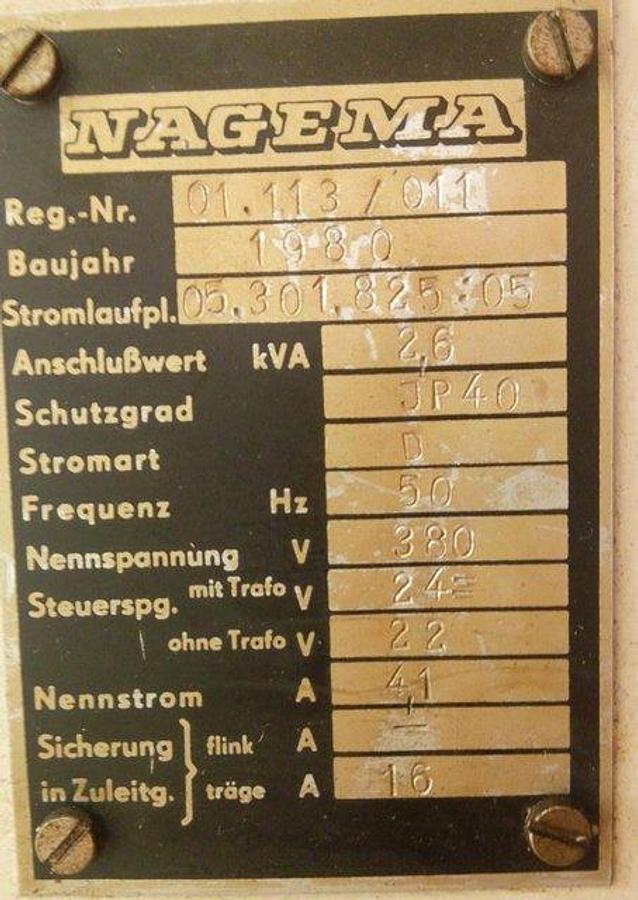 NAGEMA
Reg.-Nr. 01.113/011
Baujahr 1980
Stromlaufpl. 05.301.825:05
Anschlußwert kVA 2,6
Schutzgrad JP40
Stromart D
Frequenz Hz 50
Nennspannung V 380
Steuerspg. mit Trafo V 24=
ohne Trafo V 22
Nennstrom A 4,1
Sicherung flink A —
in Zuleitg. träge A 16